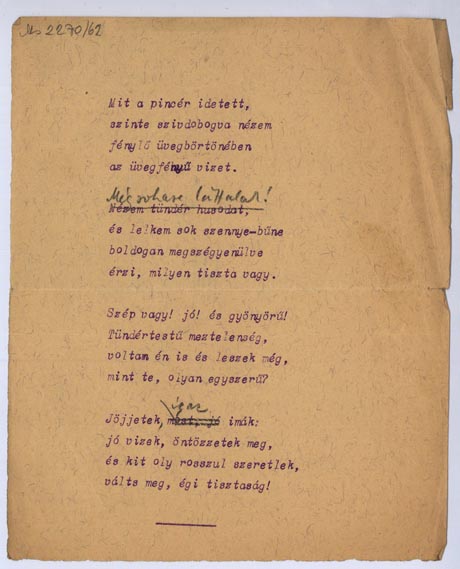 Ms 2270/62
Mit a pincér idetett,
szinte szivdobogva nézem
fénylő üvegbörtönében
az üvegfényű vizet.
Mégsohase láttalak!
Nézem tündér husodat,
és lelkem sok szennye-bűne
boldogan megszégyenülve
érzi, milyen tiszta vagy.
Szép vagy! jó! és gyönyörű!
Tündértestű meztelenség,
voltam én is és leszek még,
mint te, olyan egyszerű?
igaz
Jöjjetek, most, jó imák:
jó vizek, öntözzetek meg,
és kit oly rosszul szeretlek,
válts meg, égi tisztaság!